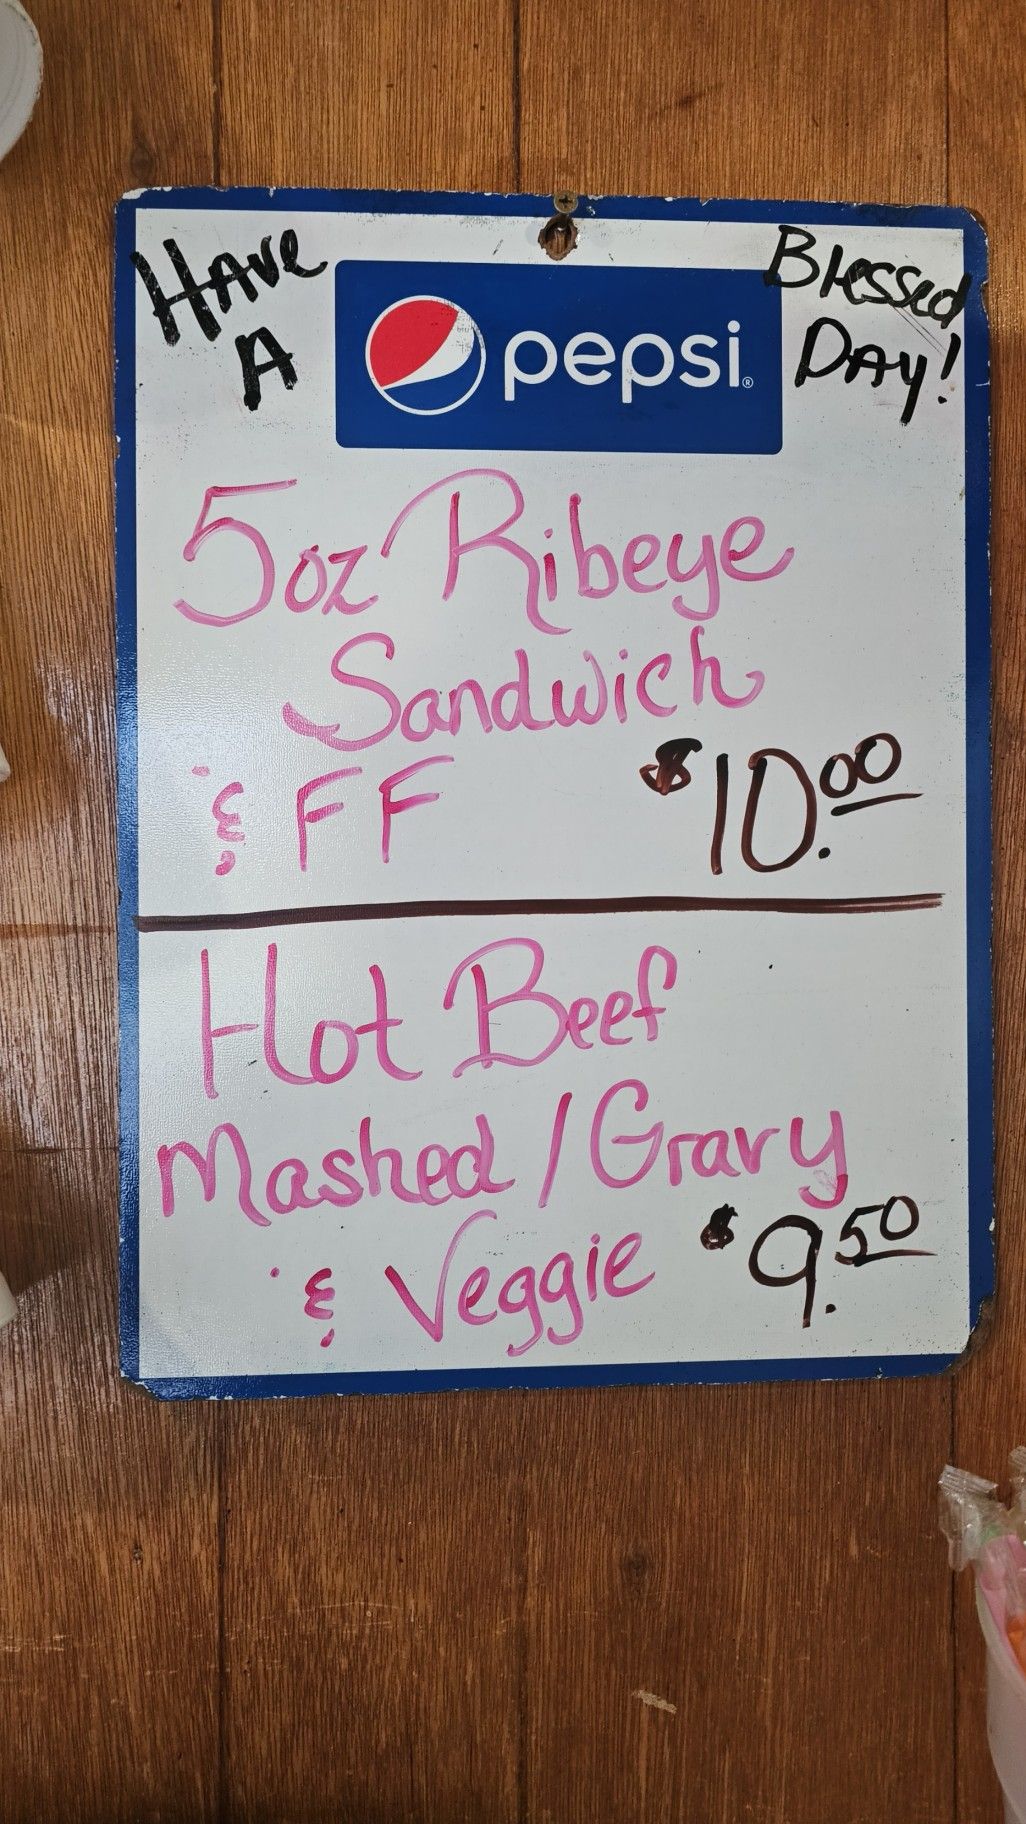 Have
A
pepsi®
Blessed
Day!
5oz Ribeye
Sandwich
& FF $10.00
Hot Beef
Mashed / Gravy
& Veggie $9.50